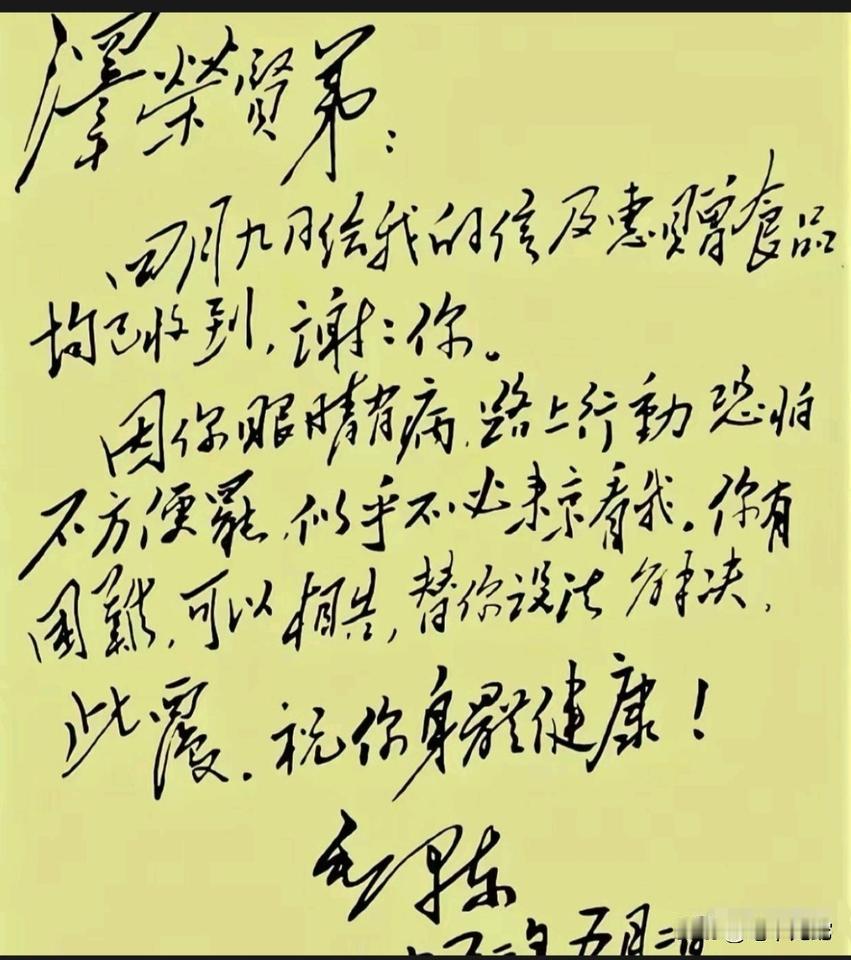 澤榮賢弟：
四月九日给我的信及惠赠食品
均已收到，谢：你。
因你眼睛有病，路上行動恐怕
不方便罷，似乎不必来京看我。你有
困難，可以相告，替你设法解决，
此覆。祝你身體健康！
毛泽东
五月二日